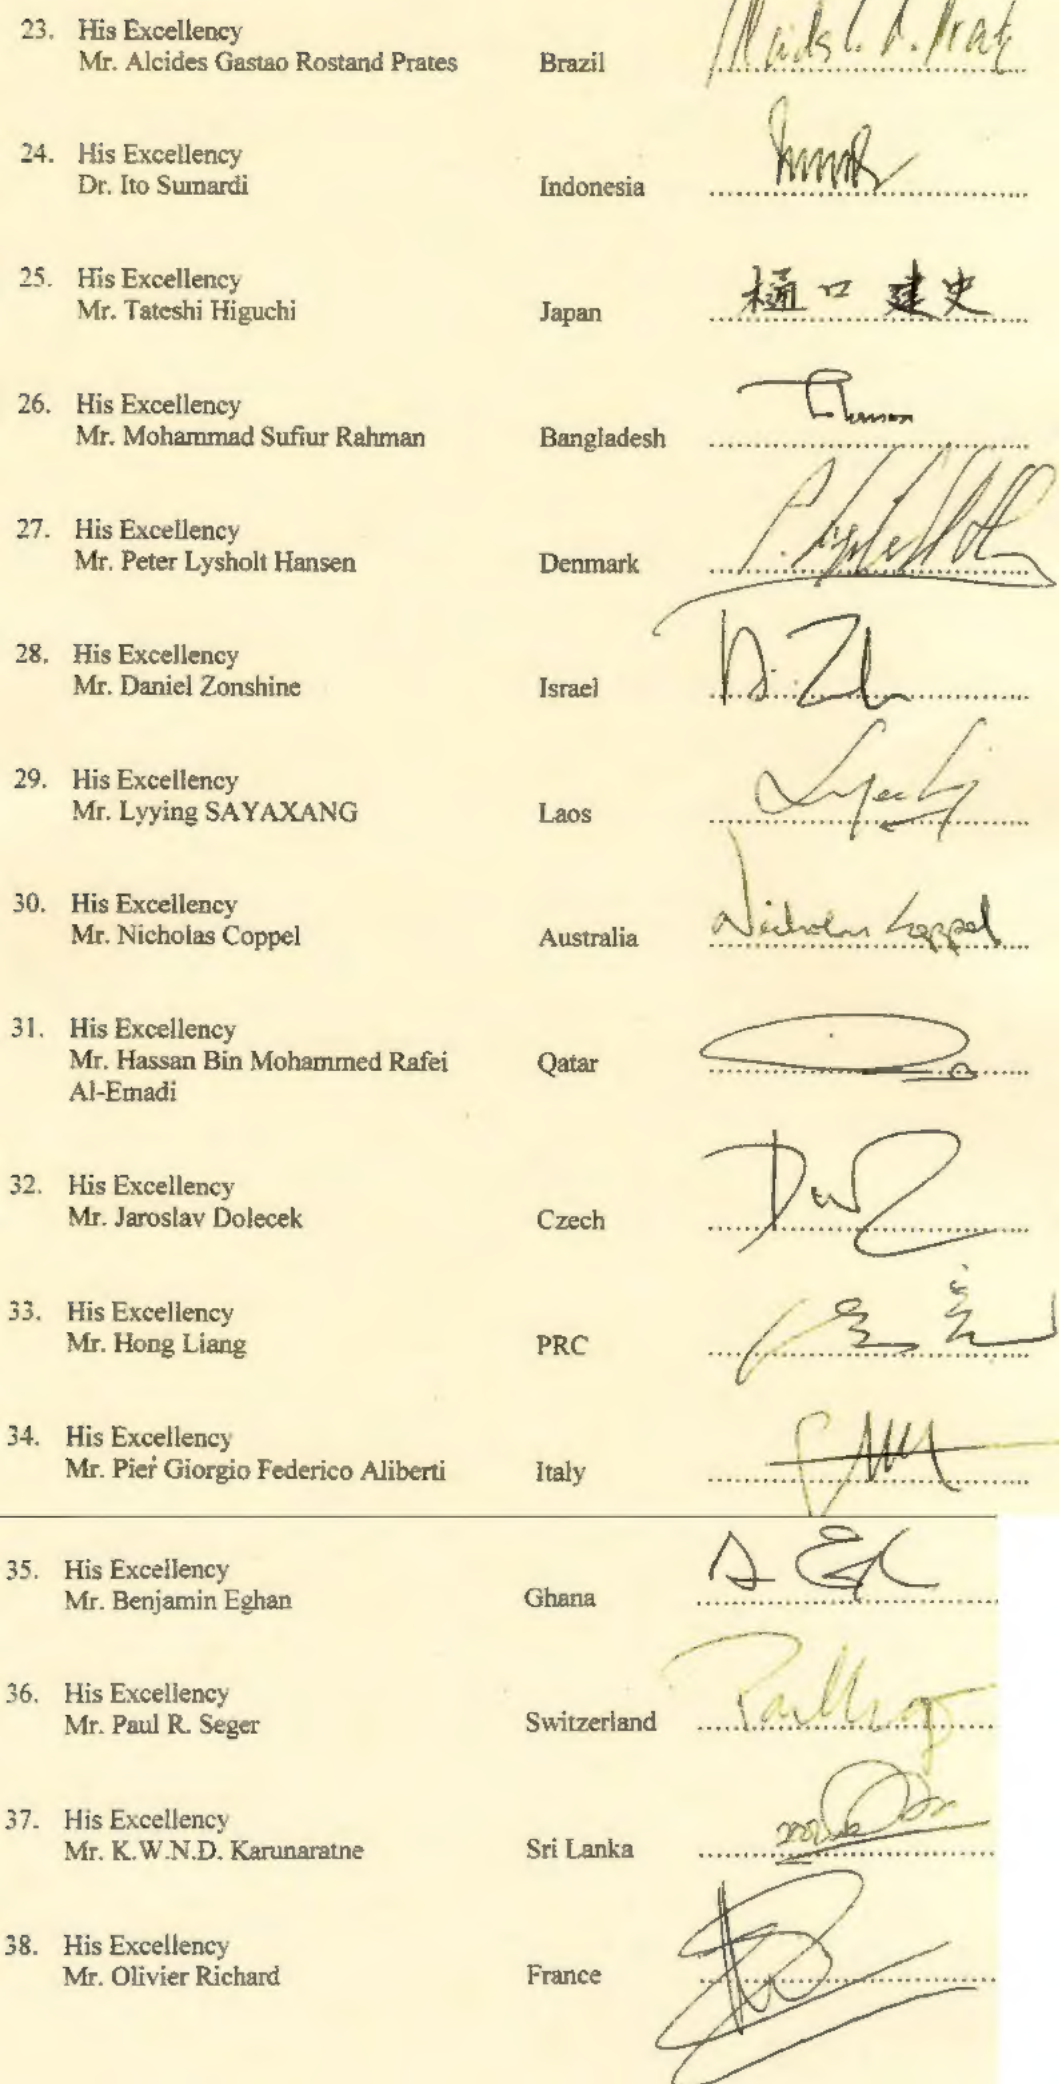 23. His Excellency
Mr. Alcides Gastao Rostand Prates Brazil
24. His Excellency
Dr. Ito Sumardi Indonesia
25. His Excellency
Mr. Tateshi Higuchi Japan 樋口建史
26. His Excellency
Mr. Mohammad Sufiur Rahman Bangladesh
27. His Excellency
Mr. Peter Lysholt Hansen Denmark
28. His Excellency
Mr. Daniel Zonshine Israel
29. His Excellency
Mr. Lyying SAYAXANG Laos
30. His Excellency
Mr. Nicholas Coppel Australia Nicholas Coppel
31. His Excellency
Mr. Hassan Bin Mohammed Rafei Qatar
Al-Emadi
32. His Excellency
Mr. Jaroslav Dolecek Czech
33. His Excellency
Mr. Hong Liang PRC
34. His Excellency
Mr. Pier Giorgio Federico Aliberti Italy
35. His Excellency
Mr. Benjamin Eghan Ghana
36. His Excellency
Mr. Paul R. Seger Switzerland
37. His Excellency
Mr. K.W.N.D. Karunaratne Sri Lanka
38. His Excellency
Mr. Olivier Richard France